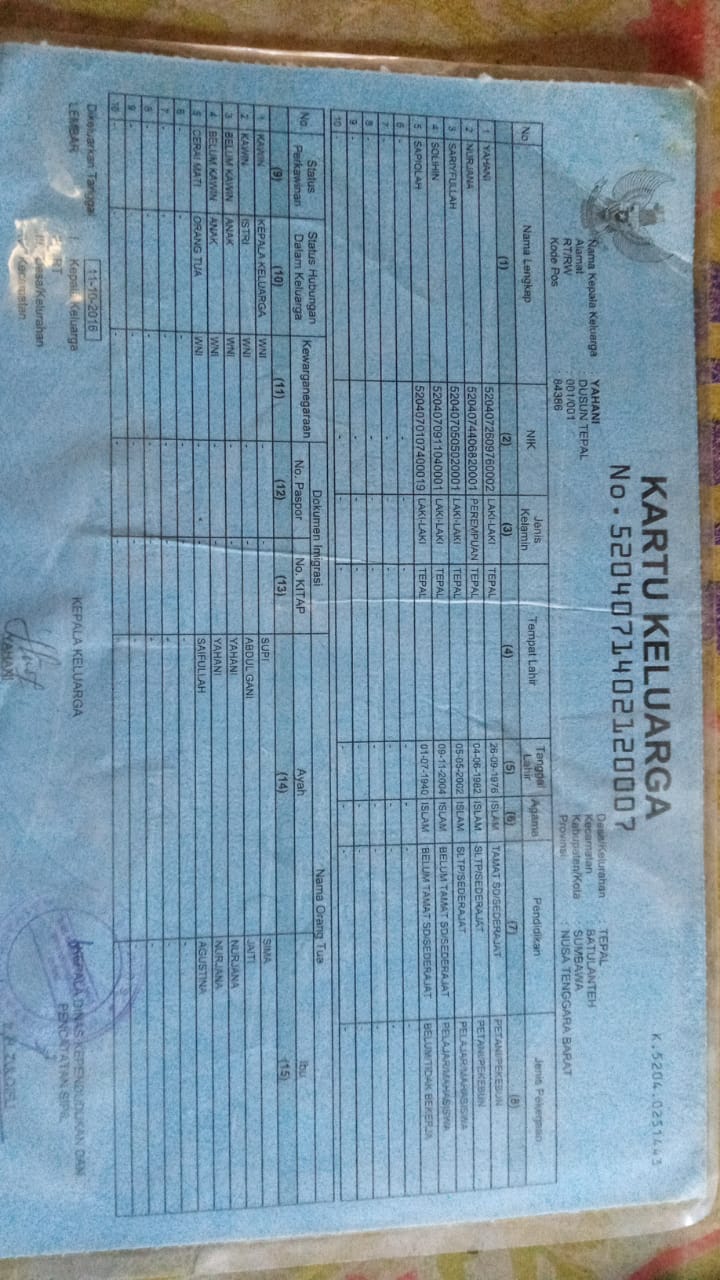 K.5204.0251443
KARTU KELUARGA
No. 5204071402120007
Nama Kepala Keluarga : YAHANI
Alamat : DUSUN TEPAL
RT/RW : 001/001
Kode Pos : 84386
Desa/Kelurahan : TEPAL
Kecamatan : BATULANTEH
Kabupaten/Kota : SUMBAWA
Provinsi : NUSA TENGGARA BARAT
No Nama Lengkap NIK Jenis Kelamin Tempat Lahir Tanggal Lahir Agama Pendidikan Jenis Pekerjaan
(1) (2) (3) (4) (5) (6) (7) (8)
1 YAHANI 5204072609760002 LAKI-LAKI TEPAL 26-09-1976 ISLAM TAMAT SD/SEDERAJAT PETANI/PEKEBUN
2 NURJANA 5204074406820001 PEREMPUAN TEPAL 04-06-1982 ISLAM SLTP/SEDERAJAT PETANI/PEKEBUN
3 SARIYFULLAH 5204070505020001 LAKI-LAKI TEPAL 05-05-2002 ISLAM SLTP/SEDERAJAT PELAJAR/MAHASISWA
4 SOLIHIN 5204070911040001 LAKI-LAKI TEPAL 09-11-2004 ISLAM BELUM TAMAT SD/SEDERAJAT PELAJAR/MAHASISWA
5 SAPIOLAH 5204070107400019 LAKI-LAKI TEPAL 01-07-1940 ISLAM BELUM TAMAT SD/SEDERAJAT BELUM/TIDAK BEKERJA
6 - - - - - - - -
7 - - - - - - - -
8 - - - - - - - -
9 - - - - - - - -
10 - - - - - - - -
No Status Perkawinan Status Hubungan Dalam Keluarga Kewarganegaraan Dokumen Imigrasi Nama Orang Tua
No. Paspor No. KITAP Ayah Ibu
(9) (10) (11) (12) (13) (14) (15)
1 KAWIN KEPALA KELUARGA WNI - - SUPI SIMA
2 KAWIN ISTRI WNI - - ABDUL GANI JAITI
3 BELUM KAWIN ANAK WNI - - YAHANI NURJANA
4 BELUM KAWIN ANAK WNI - - YAHANI NURJANA
5 CERAI MATI ORANG TUA WNI - - SAIFULLAH AGUSTINA
6 - - - - - - -
7 - - - - - - -
8 - - - - - - -
9 - - - - - - -
10 - - - - - - -
Dikeluarkan Tanggal : 11-10-2016
LEMBAR : I. Kepala Keluarga
RT
Desa/Kelurahan
Kecamatan
KEPALA KELUARGA
YAHANI
KEPALA DINAS KEPENDUDUKAN DAN
PENCATATAN SIPIL